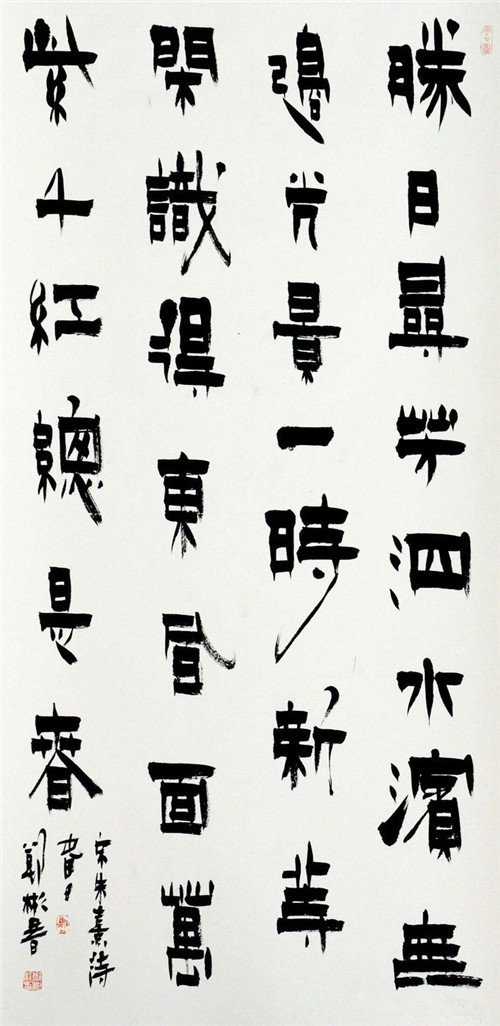 勝日尋芳泗水濱無
邊光景一時新等
閑識得東風面萬
紫千紅總是春
宋朱熹詩
春日
鄭彬書